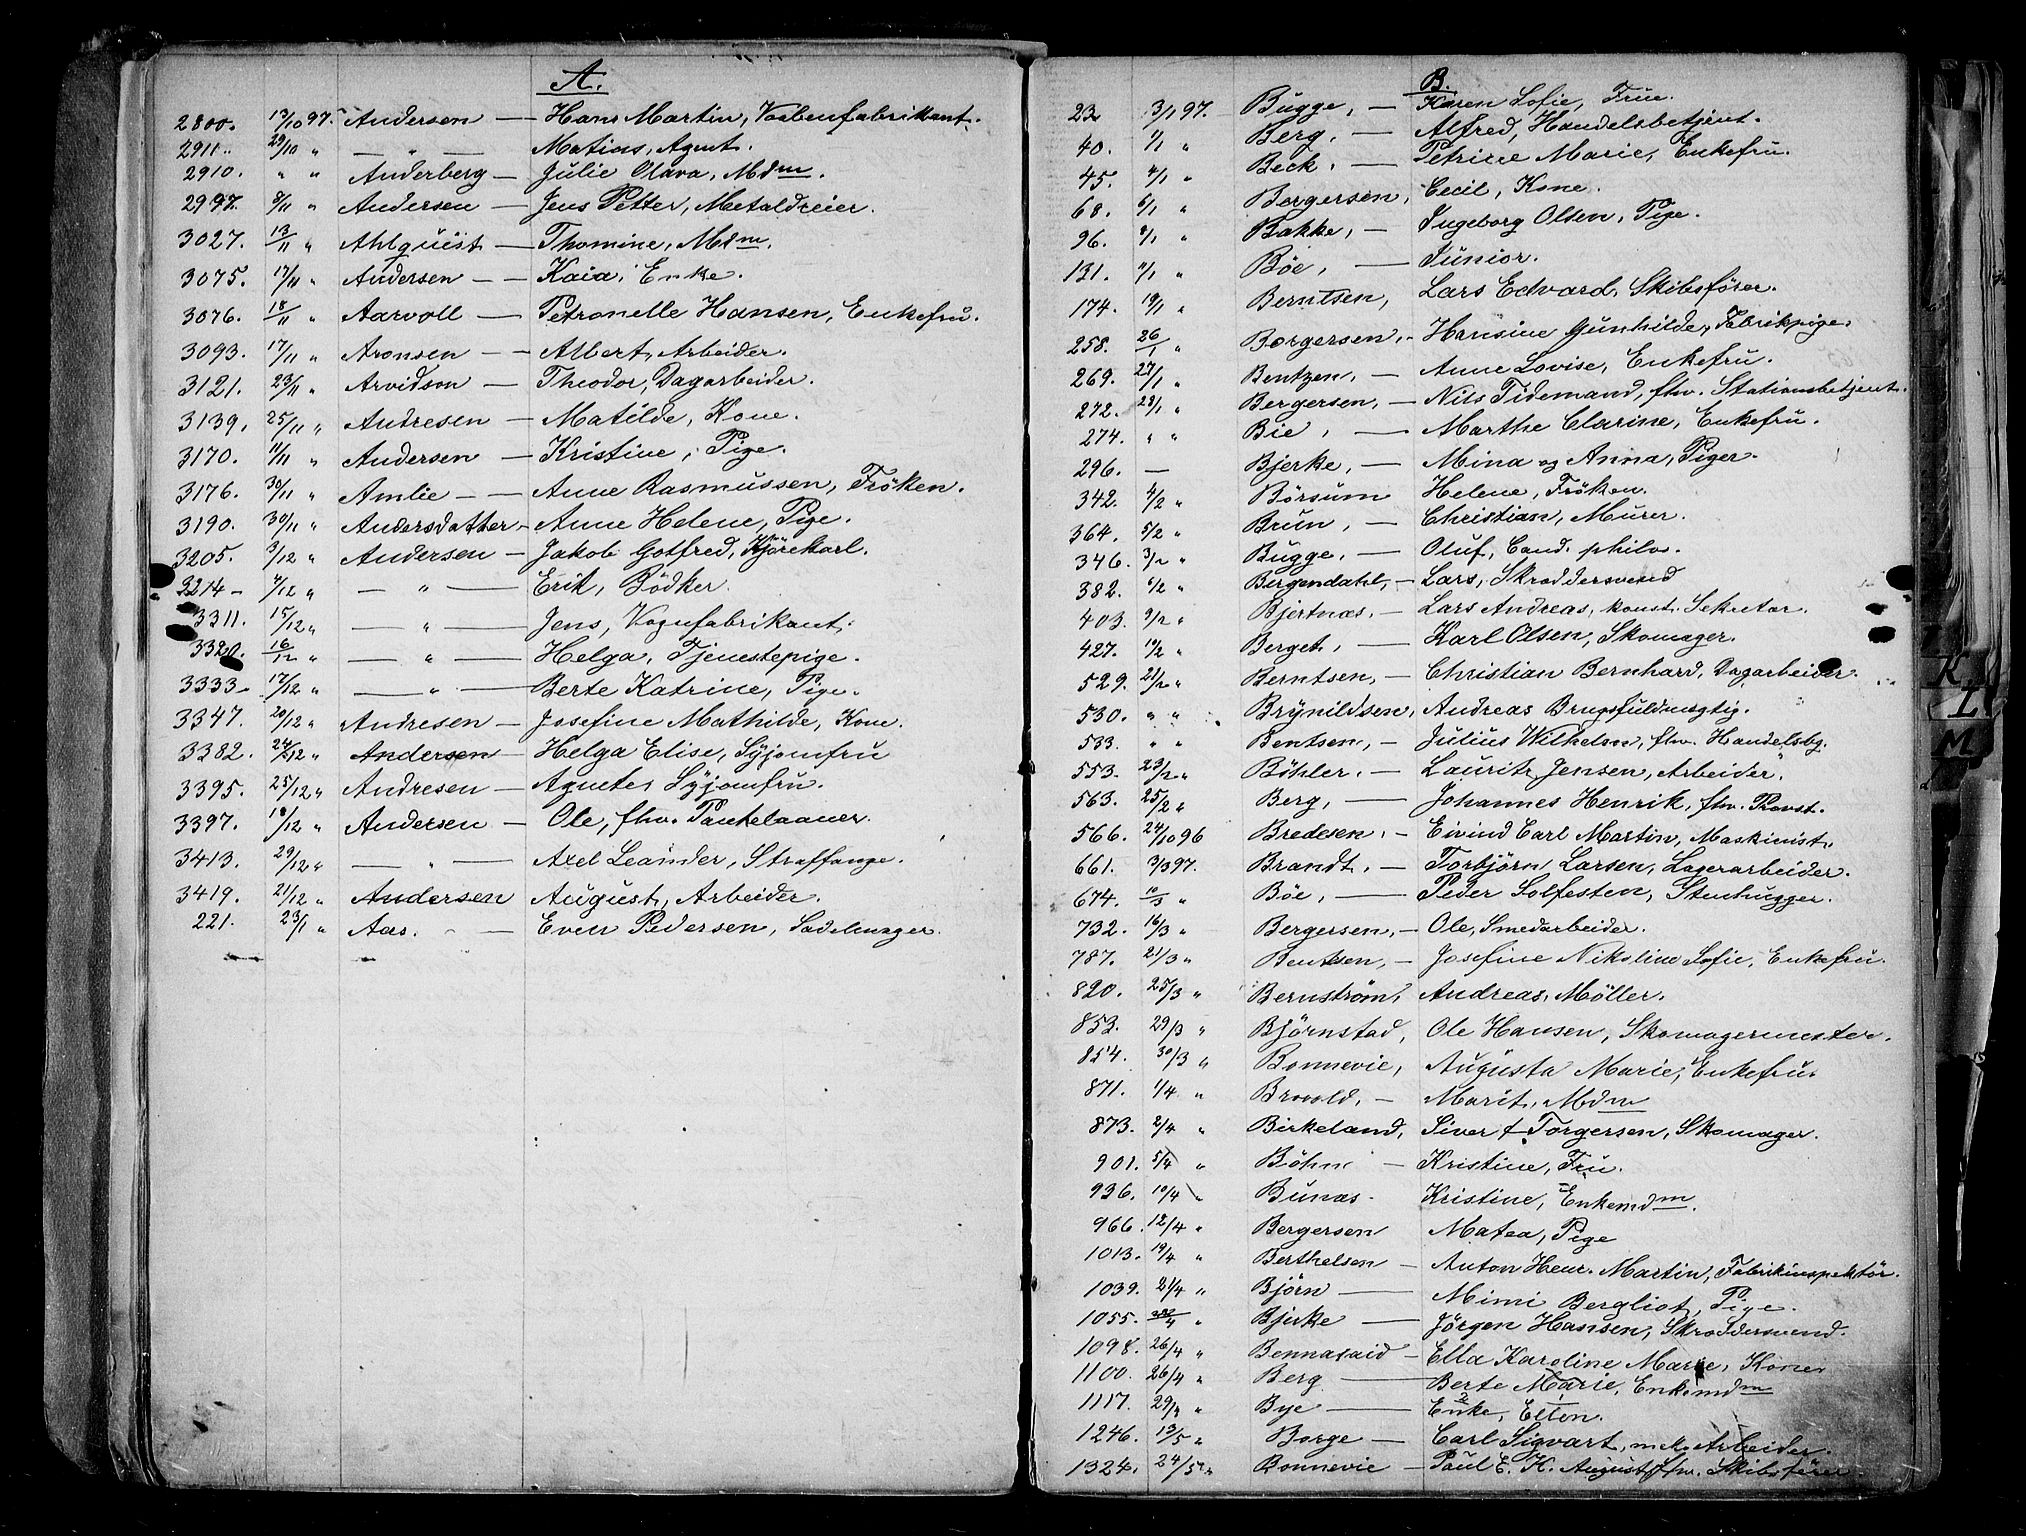 A.
2800. 13/10 97. Andersen — Hans Martin, Vaabenfabrikant.
2911. 29/10 " — " — Matias, Agent.
2910. " " Anderberg — Julie Olava, Mdm.
2997. 9/11 " Andersen — Jens Petter, Metaldreier.
3027. 13/11 " Ahlquist — Thomine, Mdm.
3075. 17/11 " Andersen — Kaia, Enke.
3076. 18/11 " Aarvoll — Petronelle Hansen, Enkefru.
3093. 17/11 " Aronsen — Albert, Arbeider.
3121. 23/11 " Arvidson — Theodor, Dagarbeider.
3139. 25/11 " Andresen — Matilde, Kone.
3170. 11/11 " Andersen — Kristine, Pige.
3176. 30/11 " Amlie — Anne Rasmussen, Frøken.
3190. 30/11 " Andersdatter — Anne Helene, Pige.
3205. 3/12 " Andersen — Jakob Gotfred, Kjørekarl.
3214 — 4/12 " — " — Erik, Bødker.
3311. 15/12 " — " — Jens, Vognfabrikant.
3320. 16/12 " — " — Helga, Tjenestepige.
3333 — 17/12 " — " — Berte Katrine, Pige.
3347. 20/12 " Andresen — Josefine Mathilde, Kone.
3382. 24/12 " Andersen — Helga Elise, Syjomfru
3395. 25/12 " Andresen — Agnete, Syjomfru.
3397. 18/12 " Andersen — Ole, fhv. Pantelaaner.
3413. 29/12 " — " — Axel Leander, Straffange.
3419. 21/12 " Andersen August, Arbeider.
221. 23/1 " Aas. — Even Pedersen, Sadelmager.
B.
23 3/1 97. Bugge, — Karen Sofie, Frue.
40. 1/1 " Berg, — Alfred, Handelsbetjent.
45. 4/1 " Beck, — Petrine Marie, Enkefru.
68. 6/1 " Bergersen, Cecil, Kone.
96. 8/1 " Bakke, — Ingeborg Olsen, Pige.
131. 11/1 " Bøe, — Junior.
174. 19/1 " Berntsen, Lars Edvard, Skibsfører.
258. 26/1 " Borgersen, — Hansine Gunhilde, Fabrikpige.
269. 27/1 " Bentzen, — Anne Lovise, Enkefru.
272. 28/1 " Bergersen, — Nils Tidemand, fhv. Stationsbetjent.
274. " " Bie, — Marthe Clarine, Enkefru.
296. — Bjerke, — Mina og Anna, Piger.
342. 4/2 " Børsum Helene, Frøken.
364. 5/2 " Brun, — Christian, Murer.
346. 3/2 " Bugge, — Oluf, Cand. philos.
382. 6/2 " Bergendahl, — Lars, Skræddersvend
403. 9/2 " Bjertnæs, — Lars Andreas, konst. Sekretær.
427. 10/2 " Berget, — Karl Olsen, Skomager.
529. 21/2 " Berntsen, — Christian Bernhard, Dagarbeider.
530. " " Brynildsen, Andreas Brugsfuldmægtig.
533. " " Bentsen, — Julius Wilhelm, fhv. Handelsbg.
553. 23/2 " Bøhler, — Lauritz Jensen, Arbeider.
563. 25/2 " Berg, — Johannes Henrik, fhv. Provst.
566. 24/10 96 Bredesen, — Eivind Carl Martin, Maskinist.
661. 3/3 97. Brandt, — Torbjørn Larsen, Lagerarbeider.
674. 10/3 " Bøe, — Peder Solfesten, Stenhugger.
732. 16/3 " Bergersen, — Ole, Smedarbeider.
787. 21/3 " Bentsen, — Josefine Nikoline Sofie, Enkefru.
820. 25/3 " Bernstrøm, Andreas, Møller.
853. 29/3 " Bjørnstad, Ole Hansen, Skomagermester.
854. 30/3 " Bonnevie, Augusta Marie, Enkefru.
871. 1/4 " Brovold, — Marit, Mdm
873. 2/4 " Birkeland, Siver Torgersen, Skomager.
901. 5/4 " Bøhn — Kristine, Fru.
936. 10/4 " Bunæs. Kristine, Enkemdm.
966. 12/4 " Bergersen Matea, Pige
1013. 19/4 " Berthelsen — Anton Henr. Martin, Fabrikinspektør.
1039. 21/4 " Bjørn — Mimi Bergliot, Pige.
1055. 22/4 " Bjerke — Jørgen Hansen, Skræddersvend.
1098. 26/4 " Bennasaid — Ella Karoline Marie, Kone.
1100. 26/4 " Berg — Berte Marie, Enkemdm
1117. 29/4 " Bye — Enke, Ellen.
1246. 13/5 " Borge — Carl Sigvart, Arbeider.
1324. 24/5 " Bonnevie — Paul E. K. August, fhv. Skibsfører
K
L
M